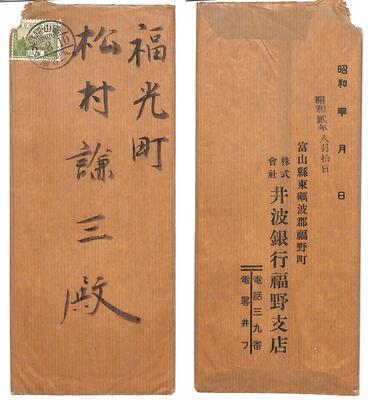 福光町
松村謙三殿
昭和 年 月 日
昭和貳年八月拾日
富山縣東礪波郡福野町
株式會社 井波銀行福野支店
電話三九番
電畧井フ